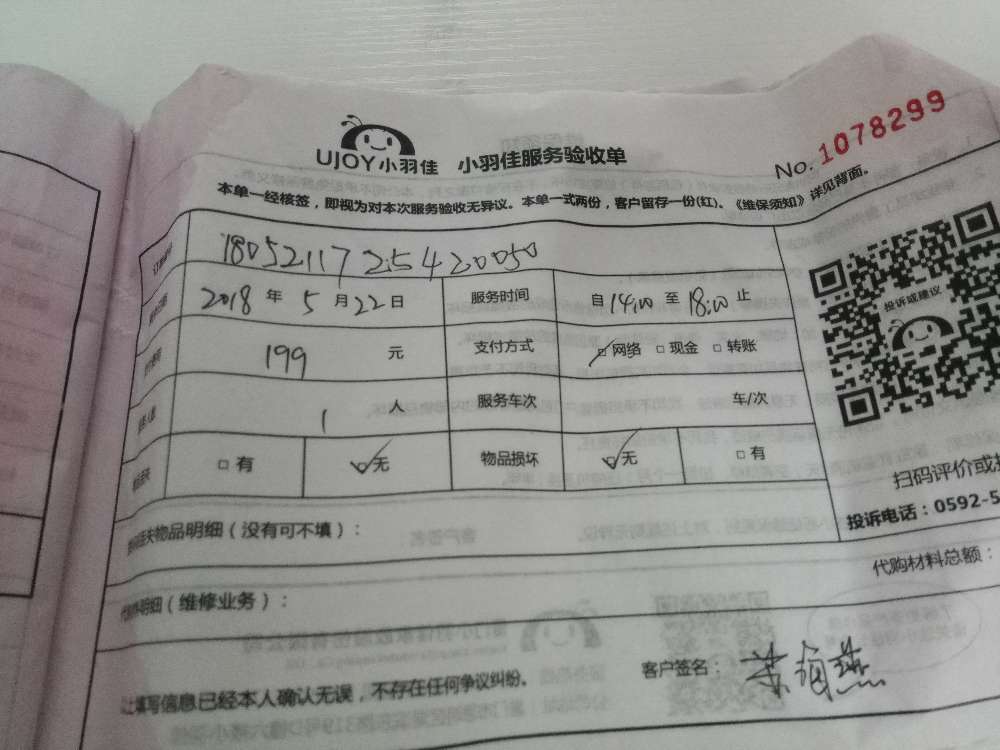 UJOY小羽佳 小羽佳服务验收单
No. 1078299
本单一经核签，即视为对本次服务验收无异议。本单一式两份，客户留存一份(红)、《维保须知》详见背面。
1805211725420050
2018 年 5 月 22 日 服务时间 自 14:00 至 18:00 止
199 元 支付方式 网络 现金 转账
1 人 服务车次 车/次
有 无 物品损坏 无 有
投诉或建议
扫码评价或
投诉电话：0592-5
失物品明细（没有可不填）：
代购材料总额：
明细（维修业务）：
填写信息已经本人确认无误，不存在任何争议纠纷。
客户签名：